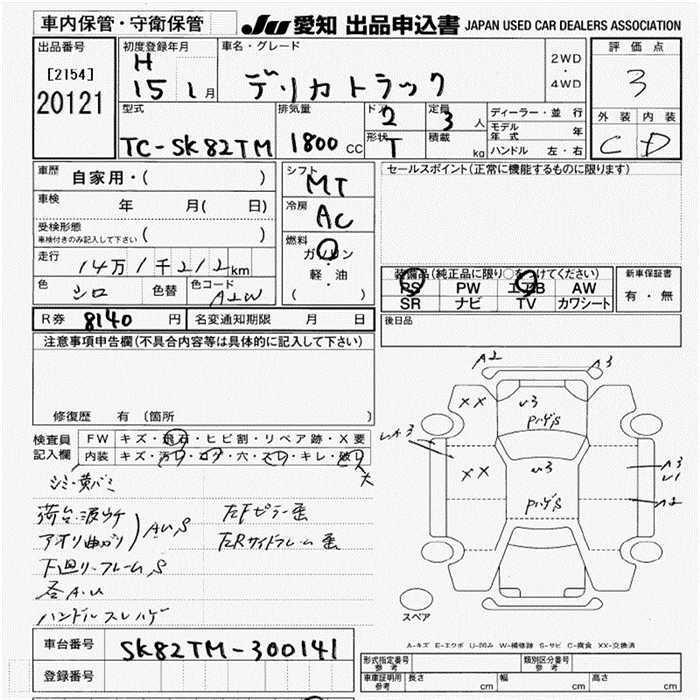 車内保管・守衛保管
JU 愛知 出品申込書 JAPAN USED CAR DEALERS ASSOCIATION
出品番号
[2154]
20121
初度登録年月
H
15 1月
車名・グレード
デリカトラック
2WD
・
4WD
評価点
3
外装 内装
C D
型式
TC-SK82TM
排気量
1800 CC
ドア 2
形状 T
定員 3 人
積載 kg
ディーラー・並 行
モデル年式 年
ハンドル 左・右
車歴 自家用・( )
車検 年 月( 日)
受検形態
車検付きのみ記入して下さい ( )
走行 14万1千212km
色 シロ 色替 色コード A2W
シフト MT
冷房 AC
燃料
ガソリン
・
軽・油
( )
セールスポイント(正常に機能するものに限ります)
装備品(純正品に限り○をつけてください)
PS PW エアB AW
SR ナビ TV カワシート
新車保証書
有・無
R券 8140 円 名変通知期限 月 日
後日品
注意事項申告欄(不具合内容等は具体的に記入して下さい)
修復歴 有 〔箇所 〕
検査員
記入欄
FW キズ・飛石・ヒビ割・リペア跡・X要
内装 キズ・汚れ・コゲ・穴・スレ・キレ・破れ
大
シミ・黄バミ
荷台・波ウケ
アオリ曲がり
AU,S
左Fピラー歪
左Rサイドフレーム歪
下廻り・フレーム S
各A.U
ハンドルスレハゲ
A2
A3
XX
U3
XX
U3
A3
A3
U1
A2
スペア
A-キズ E-エクボ U-凹み W-補修跡 S-サビ C-腐食 XX-交換済
車台番号 SK82TM-300141
登録番号
形式指定番号 参考
類別区分番号 参考
車庫証明用 参考 長さ cm 幅 cm 高さ cm